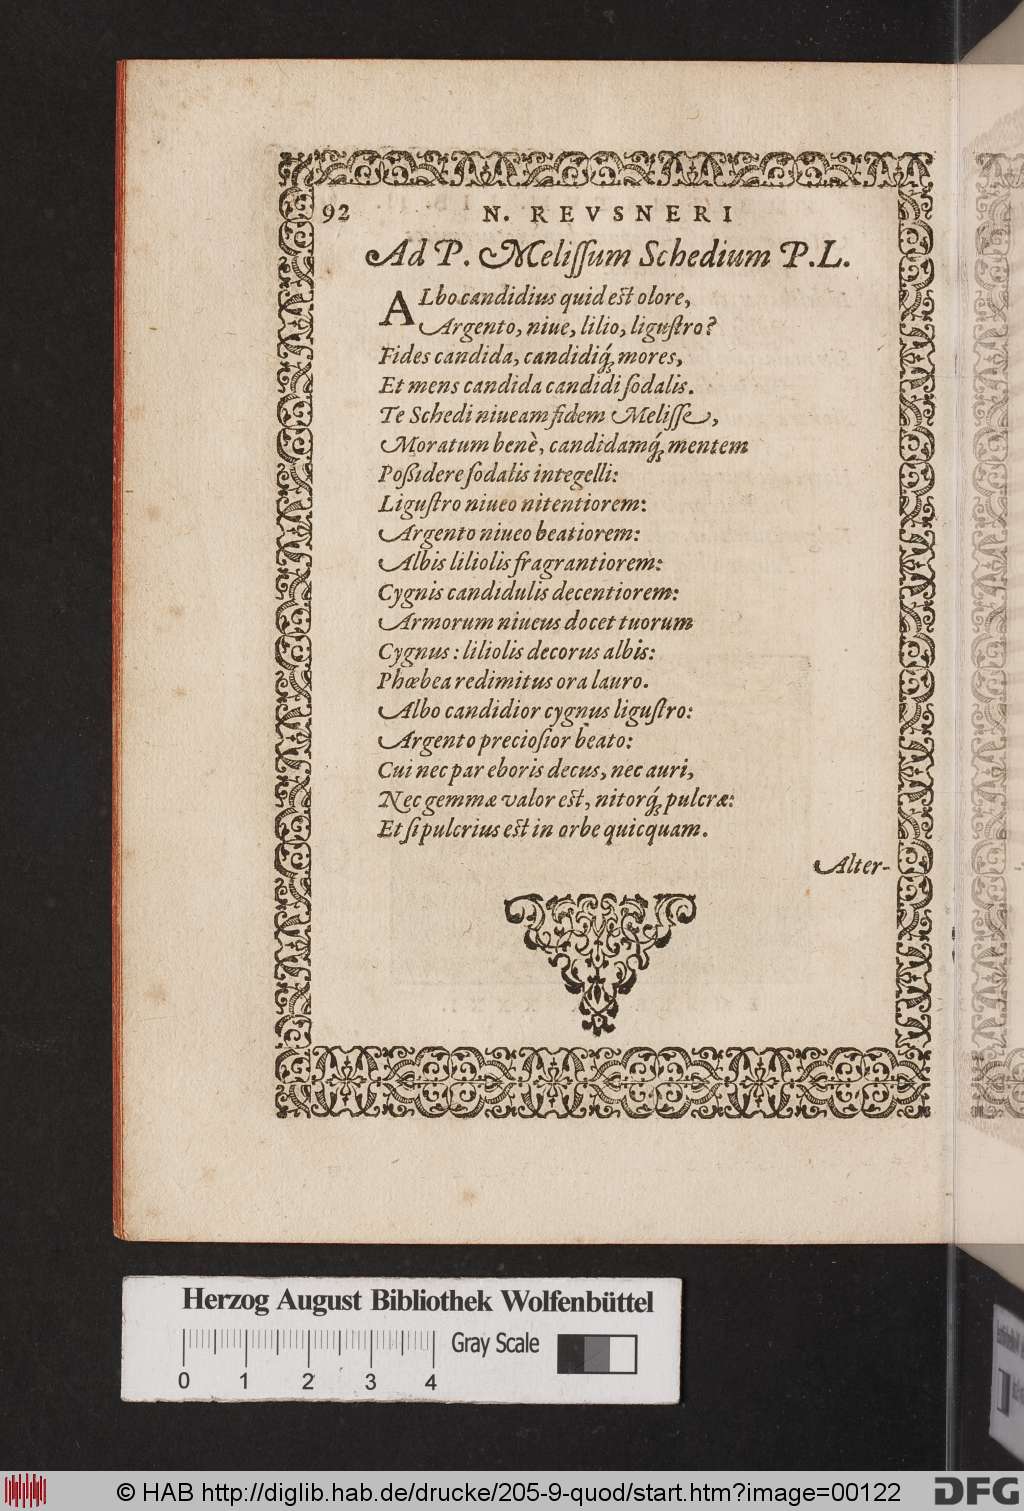 92 N. REVSNERI
Ad P. Melissum Schedium P.L.
ALbo candidius quid est olore,
Argento, niue, lilio, ligustro?
Fides candida, candidiq́; mores,
Et mens candida candidi sodalis.
Te Schedi niueam fidem Melisse,
Moratum benè, candidamq́; mentem
Poßidere sodalis integelli:
Ligustro niueo nitentiorem:
Argento niueo beatiorem:
Albis liliolis fragrantiorem:
Cygnis candidulis decentiorem:
Armorum niueus docet tuorum
Cygnus: liliolis decorus albis:
Phœbea redimitus ora lauro.
Albo candidior cygnus ligustro:
Argento preciosior beato:
Cui nec par eboris decus, nec auri,
Nec gemmæ valor est, nitorq́; pulcræ:
Et si pulcrius est in orbe quicquam.
Alter-
Herzog August Bibliothek Wolfenbüttel
Gray Scale
0 1 2 3 4
© HAB http://diglib.hab.de/drucke/205-9-quod/start.htm?image=00122
DFG